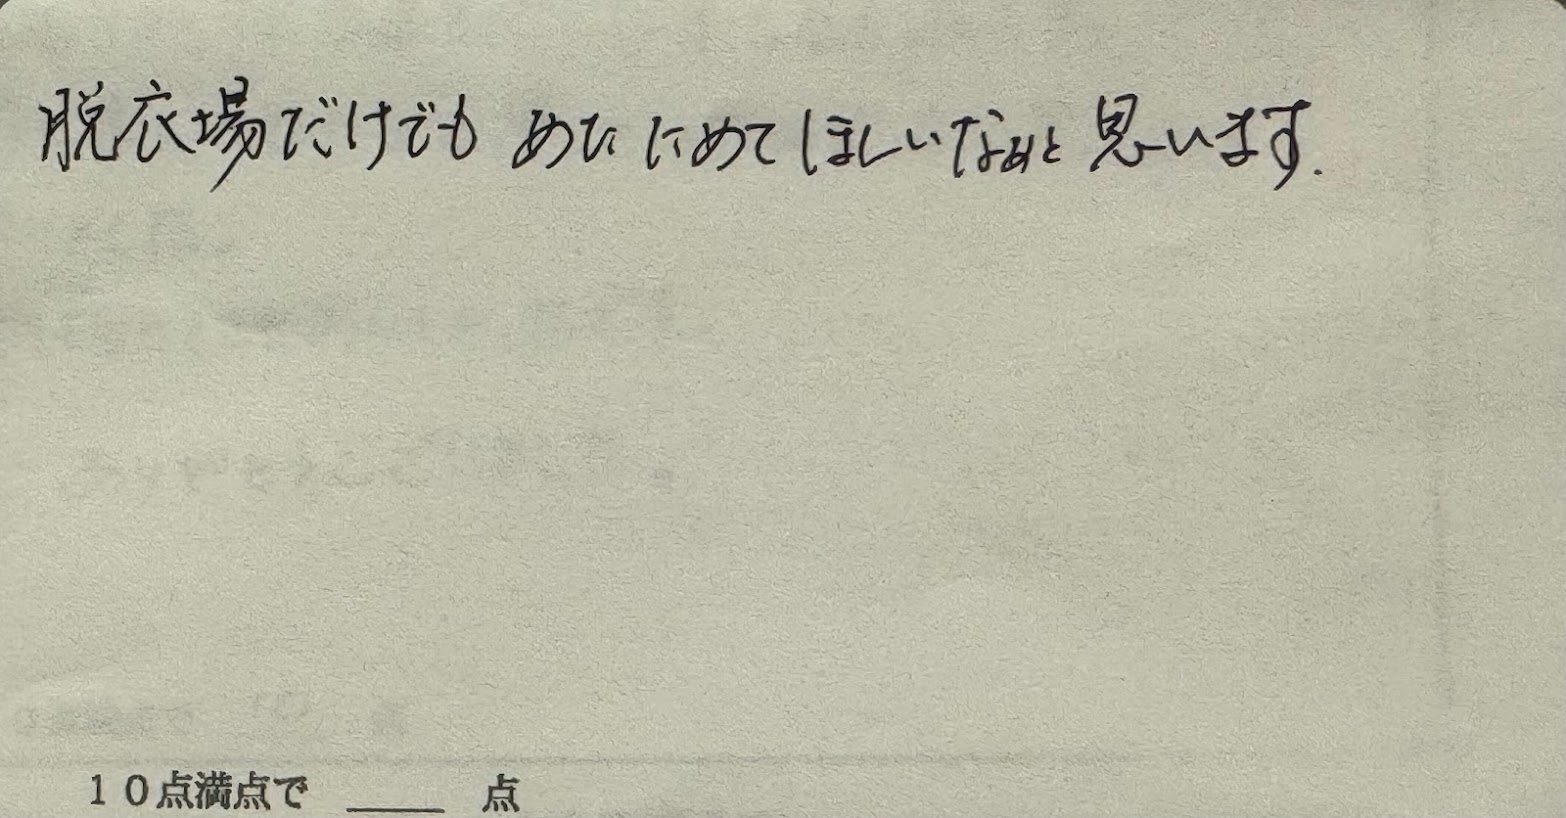 脱衣場だけでも あたたためてほしいなあと思います.
10点満点で ____ 点